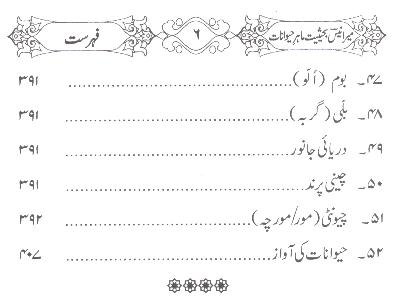 میر انیسؔ بحیثیت ماہر حیوانات ۶ فہرست
۴۷۔ بوم (اُلّو) ۳۹۱
۴۸۔ بلّی (گربہ) ۳۹۱
۴۹۔ دریائی جانور ۳۹۱
۵۰۔ چینی پرند ۳۹۱
۵۱۔ چیونٹی (مور/مورچہ) ۳۹۲
۵۲۔ حیوانات کی آواز ۴۰۷